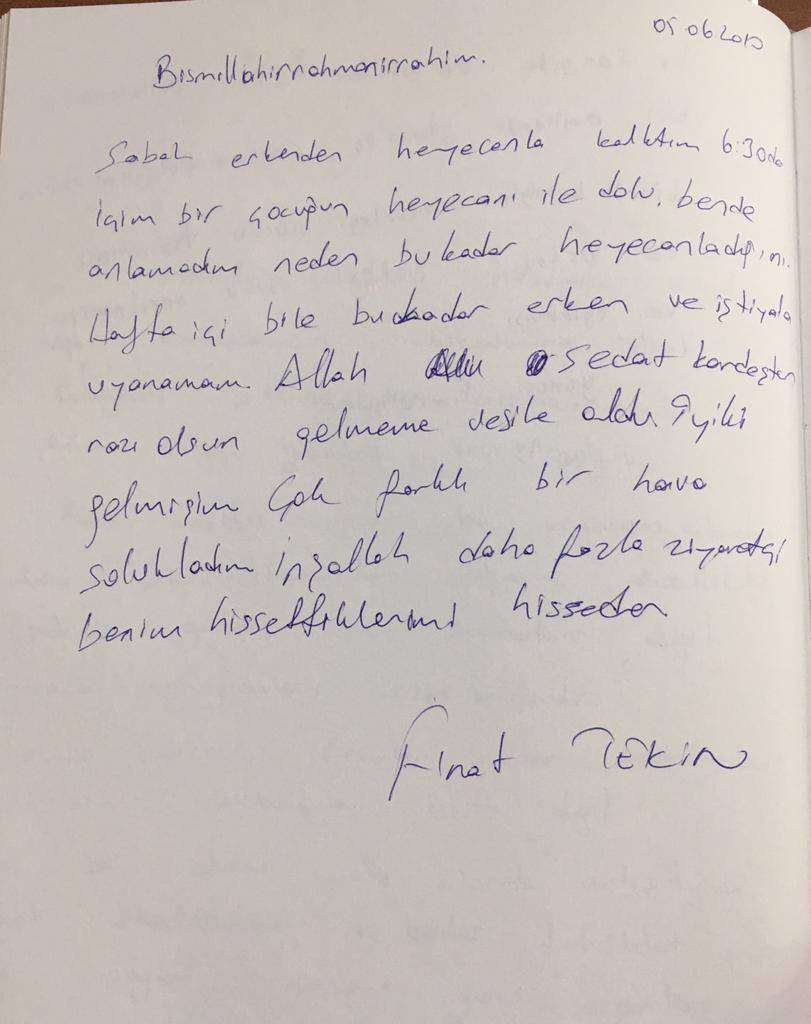 05 06 2010
Bismillahirrahmanirrahim.
Sabah erkenden heyecanla kalktım 6:30da
içim bir çocuğun heyecanı ile dolu, bende
anlamadım neden bukadar heyecanladığımı.
Hafta içi bile bukadar erken ve iştiyala
uyanamam. Allah Sedat kardeşten
razı olsun gelmeme vesile oldu iyiki
gelmişim Çok farklı bir hava
solukladım inşallah daha fazla ziyaretçi
benim hissettiklerimi hisseder.
Fırat TEKİN